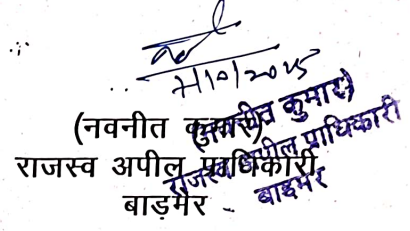 7/10/2025
(नवनीत कुमार)
राजस्व अपील प्राधिकारी
बाड़मेर
(नवनीत कुमार)
राजस्व अपील प्राधिकारी
बाड़मेर